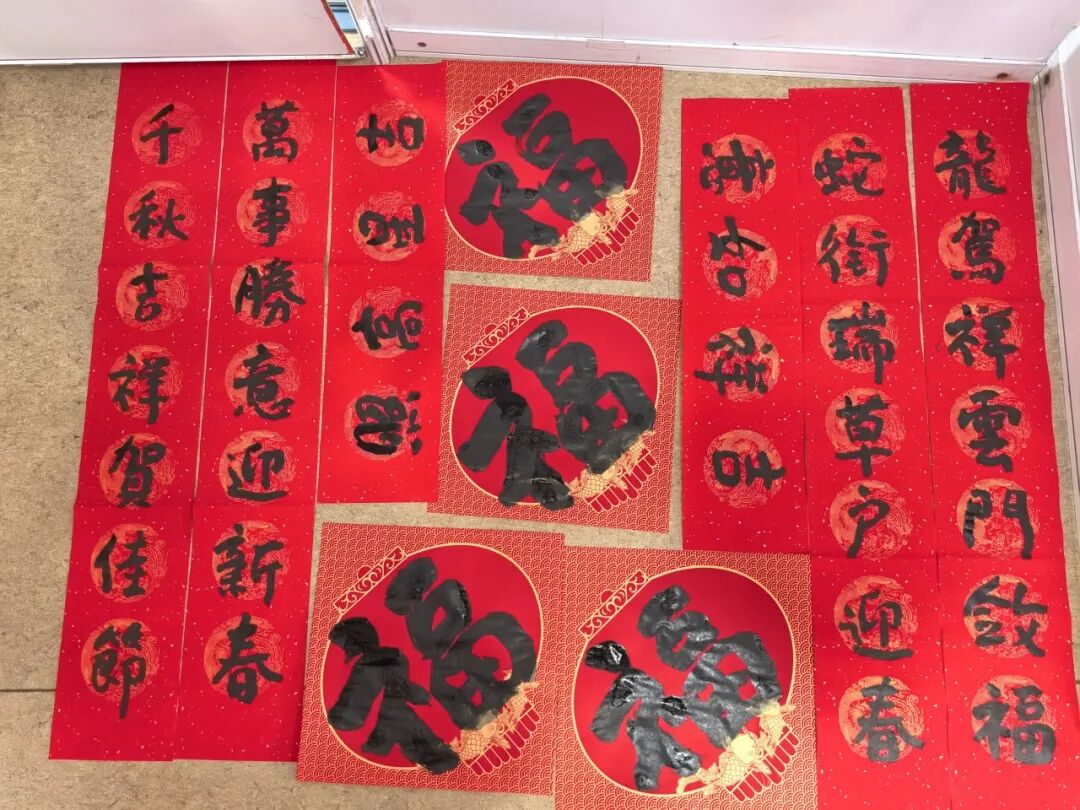 龍駕祥雲門斂福
蛇銜瑞草户迎春
吉祥如意
福
福
福
福
吉星高照
萬事勝意迎新春
千秋吉祥賀佳節